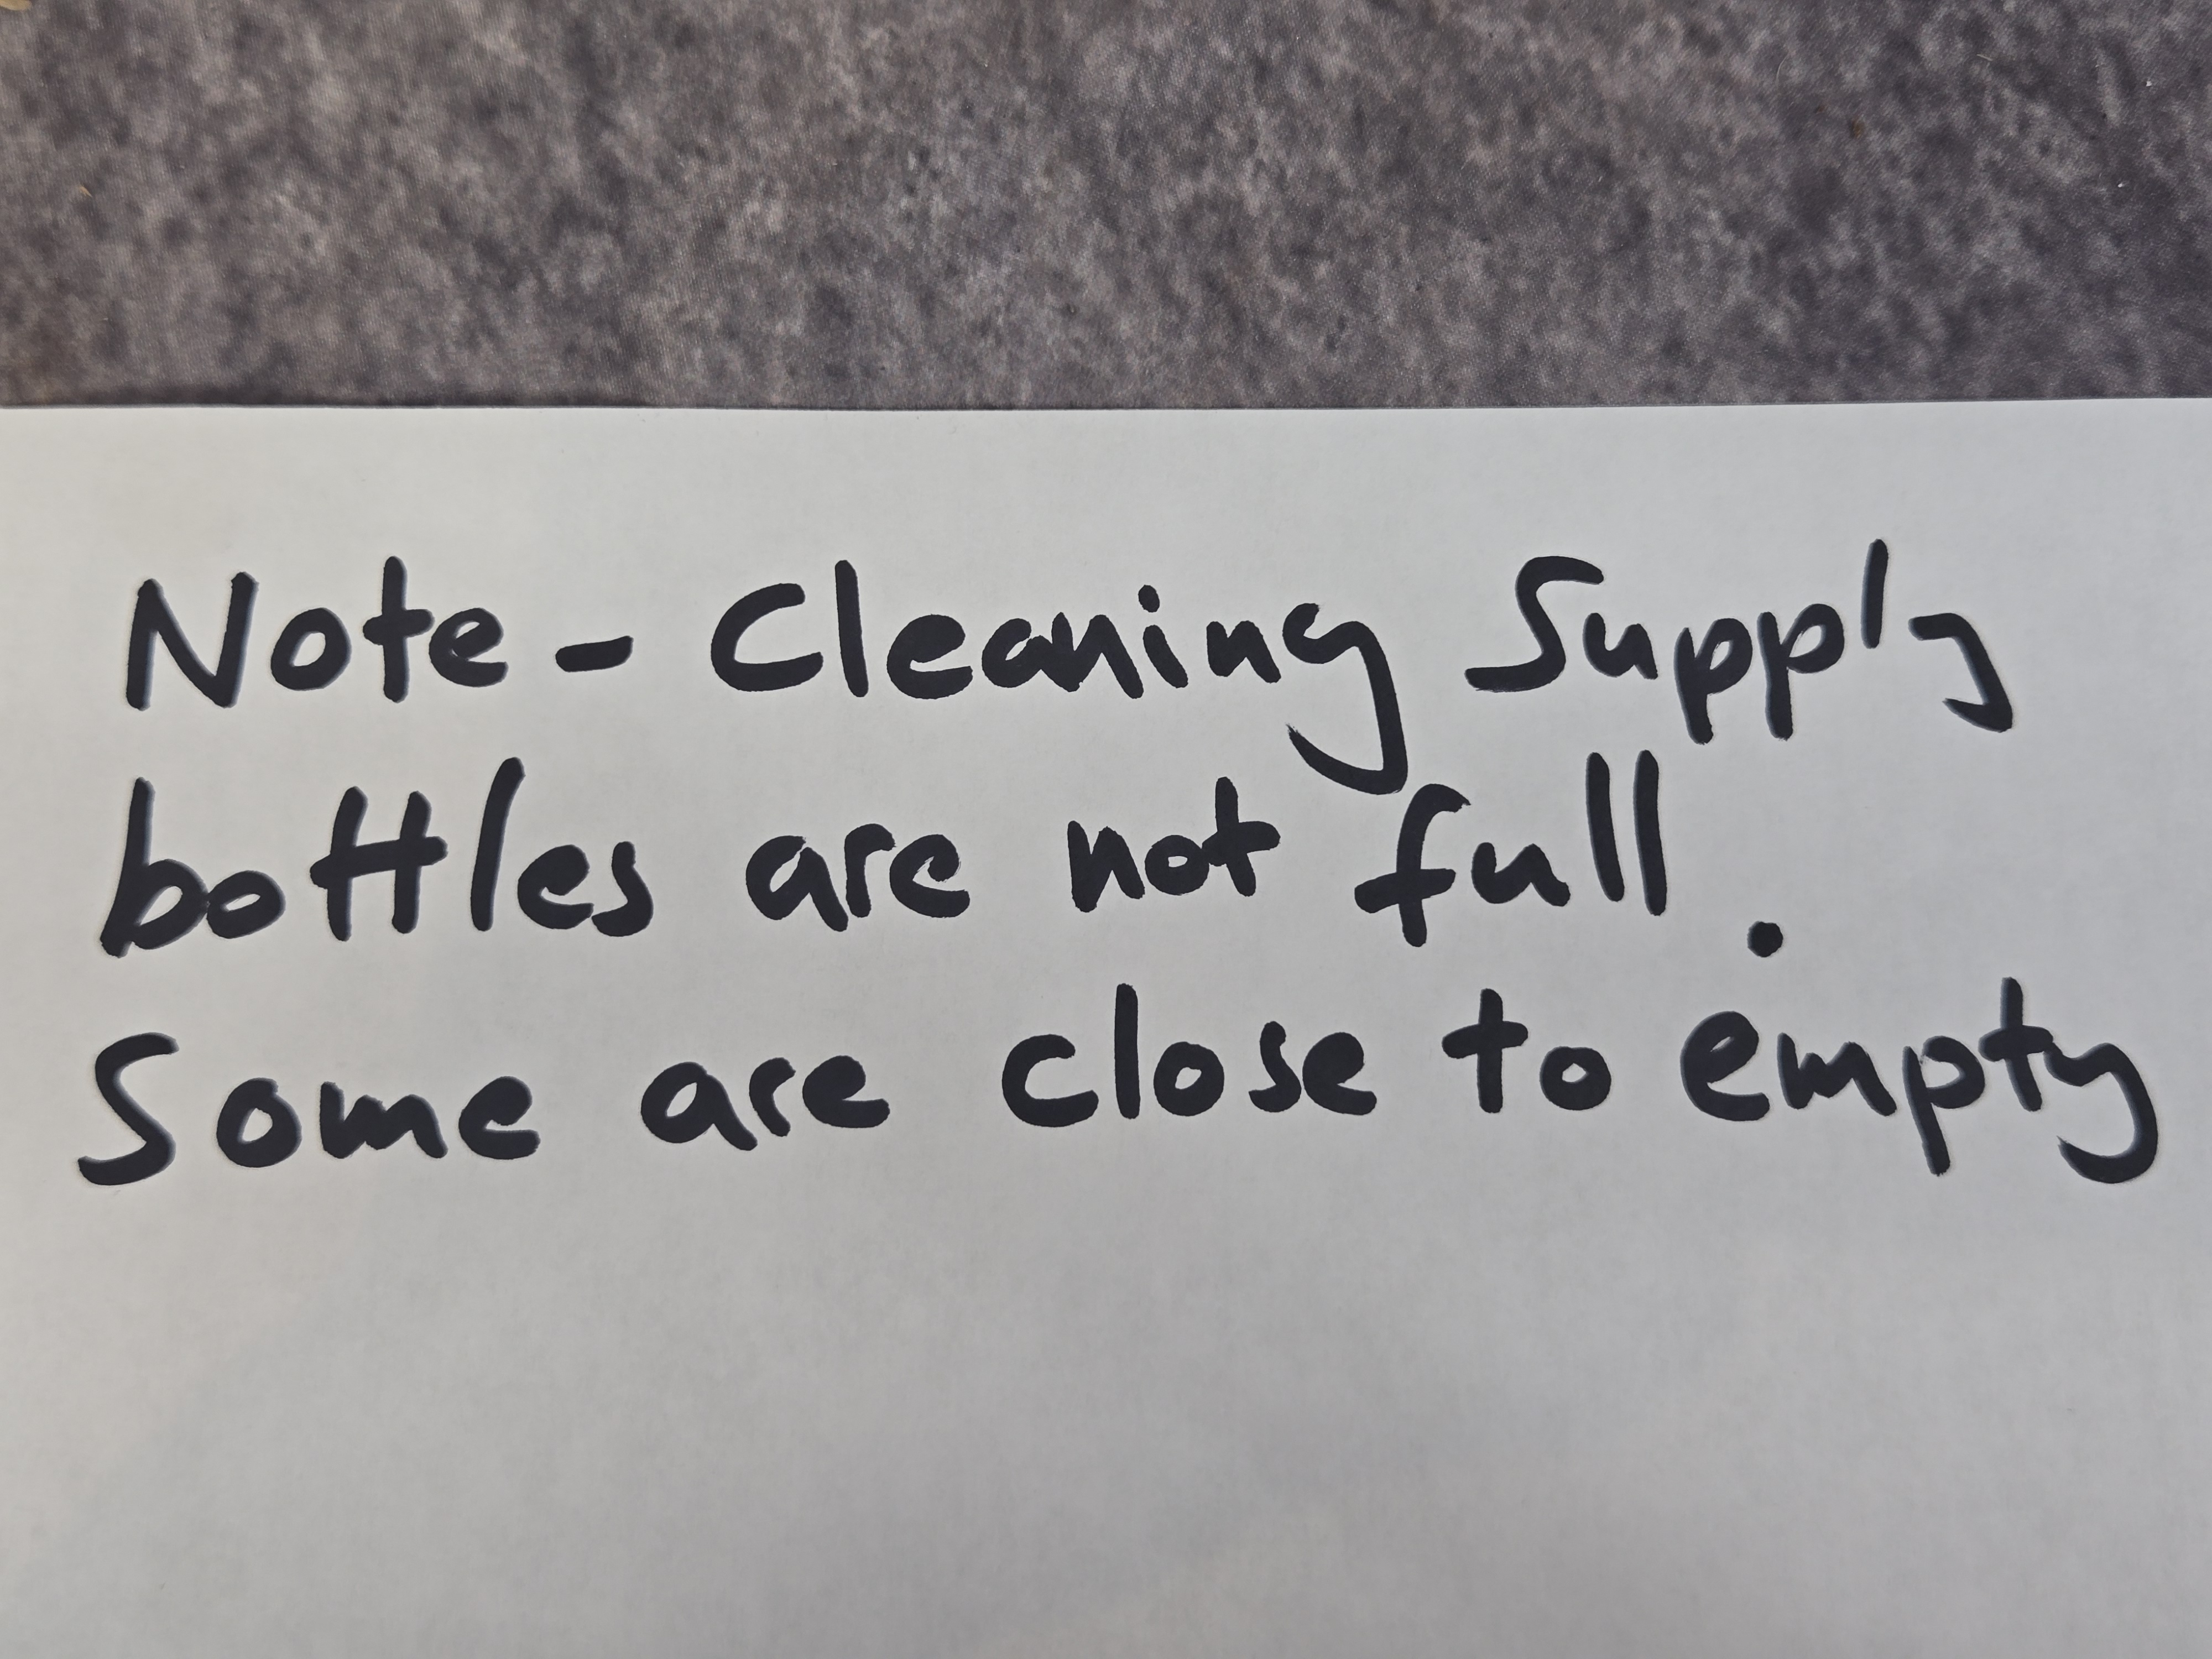 Note - Cleaning Supply
bottles are not full.
Some are close to empty